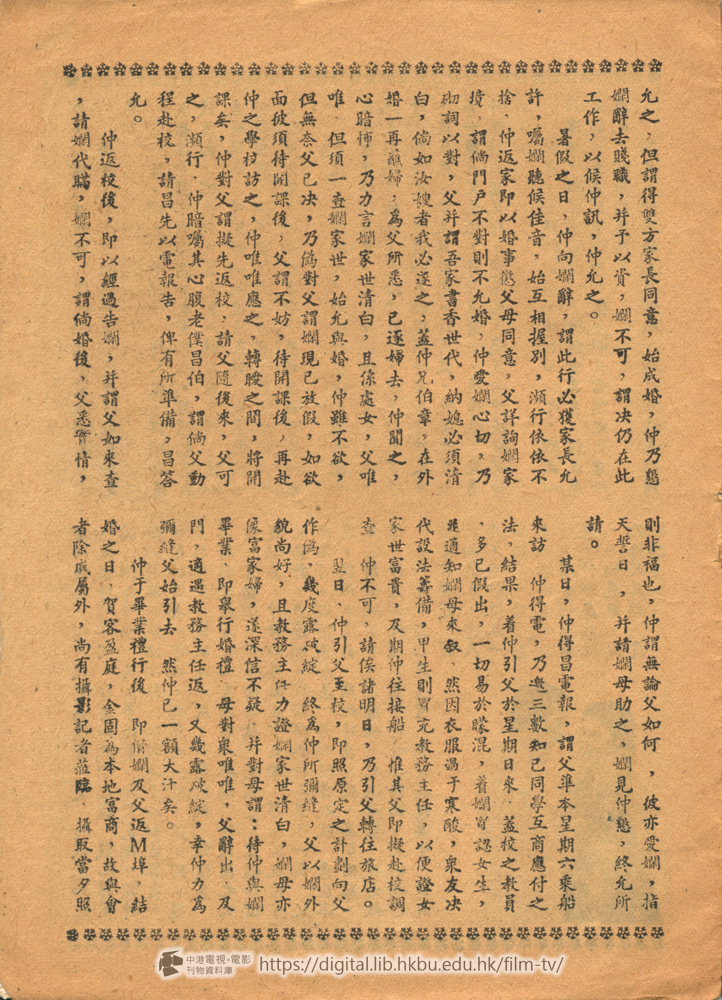 允之，但謂得雙方家長同意，始成婚，仲乃懇
嫻辭去賤職，并予以資，嫻不可，謂决仍在此
工作，以候仲訊，仲允之。
暑假之日，仲向嫻辭，謂此行必獲家長允
許，囑嫻聽候佳音，始互相握別，瀕行依依不
捨，仲返家即以婚事懲父母同意，父詳詢嫻家
境，謂倘門户不對則不允婚，仲愛嫻心切，乃
砌詞以對，父并謂吾家書香世代，納媳必須清
白，倘如汝嫂者我必逐之，蓋仲兄伯章，在外
婚一再蘸婦，為父所悉，已逐婦去，仲聞之，
心暗怖，乃力言嫻家世清白，且係處女，父唯
唯，但須一查嫻家世，始允與婚，仲雖不欲，
但無奈父已决，乃偽對父謂嫻現已放假，如欲
面彼須待開課後，父謂不妨，待開課後，再赴
仲之學校訪之，仲唯唯應之，轉瞬之間，將開
課矣，仲對父謂擬先返校，請父隨後來，父可
之，瀕行，仲暗囑其心腹老僕昌伯，謂倘父動
程赴校，請昌先以電報告，俾有所準備，昌答
允。
仲返校後，即以經過告嫻，并謂父如來查
，請嫻代瞞，嫻不可，謂倘婚後，父悉實情，
則非福也，仲謂無論父如何，彼亦愛嫻，指
天誓日，并請嫻母助之，嫻見仲懇，終允所
請。
某日，仲得昌電報，謂父準本星期六乘船
來訪 仲得電，乃邀三數知己同學互商應付之
法，結果，着仲引父於星期日來，蓋校之教員
，多已假出，一切易於矇混，着嫻冒認女生，
並通知嫻母來叙，然因衣服過于寒酸，衆友决
代設法籌備，甲生則冒充教務主任，以便證女
家世富貴，及期仲往接船，惟其父即擬赴校調
查 仲不可，請俟諸明日，乃引父轉往旅店。
翌日，仲引父至校，即照原定之計劃向父
作偽，幾度露破綻，終為仲所彌縫，父以嫻外
貌尚好，且教務主任力證嫻家世清白，嫻母亦
像富家婦，遂深信不疑，并對母謂：待仲與嫻
畢業，即舉行婚禮，母對衆唯唯，父辭出，及
門，適遇教務主任返，又幾露破綻，幸仲力為
彌縫父始引去 然仲已一額大汗矣。
仲于畢業禮行後 即偕嫻及父返Ｍ埠，結
婚之日，賀客盈庭，金固為本地富商，故與會
者除戚屬外，尚有攝影記者蒞臨，攝取當夕照
中港電視·電影
刊物資料庫
https://digital.lib.hkbu.edu.hk/film-tv/